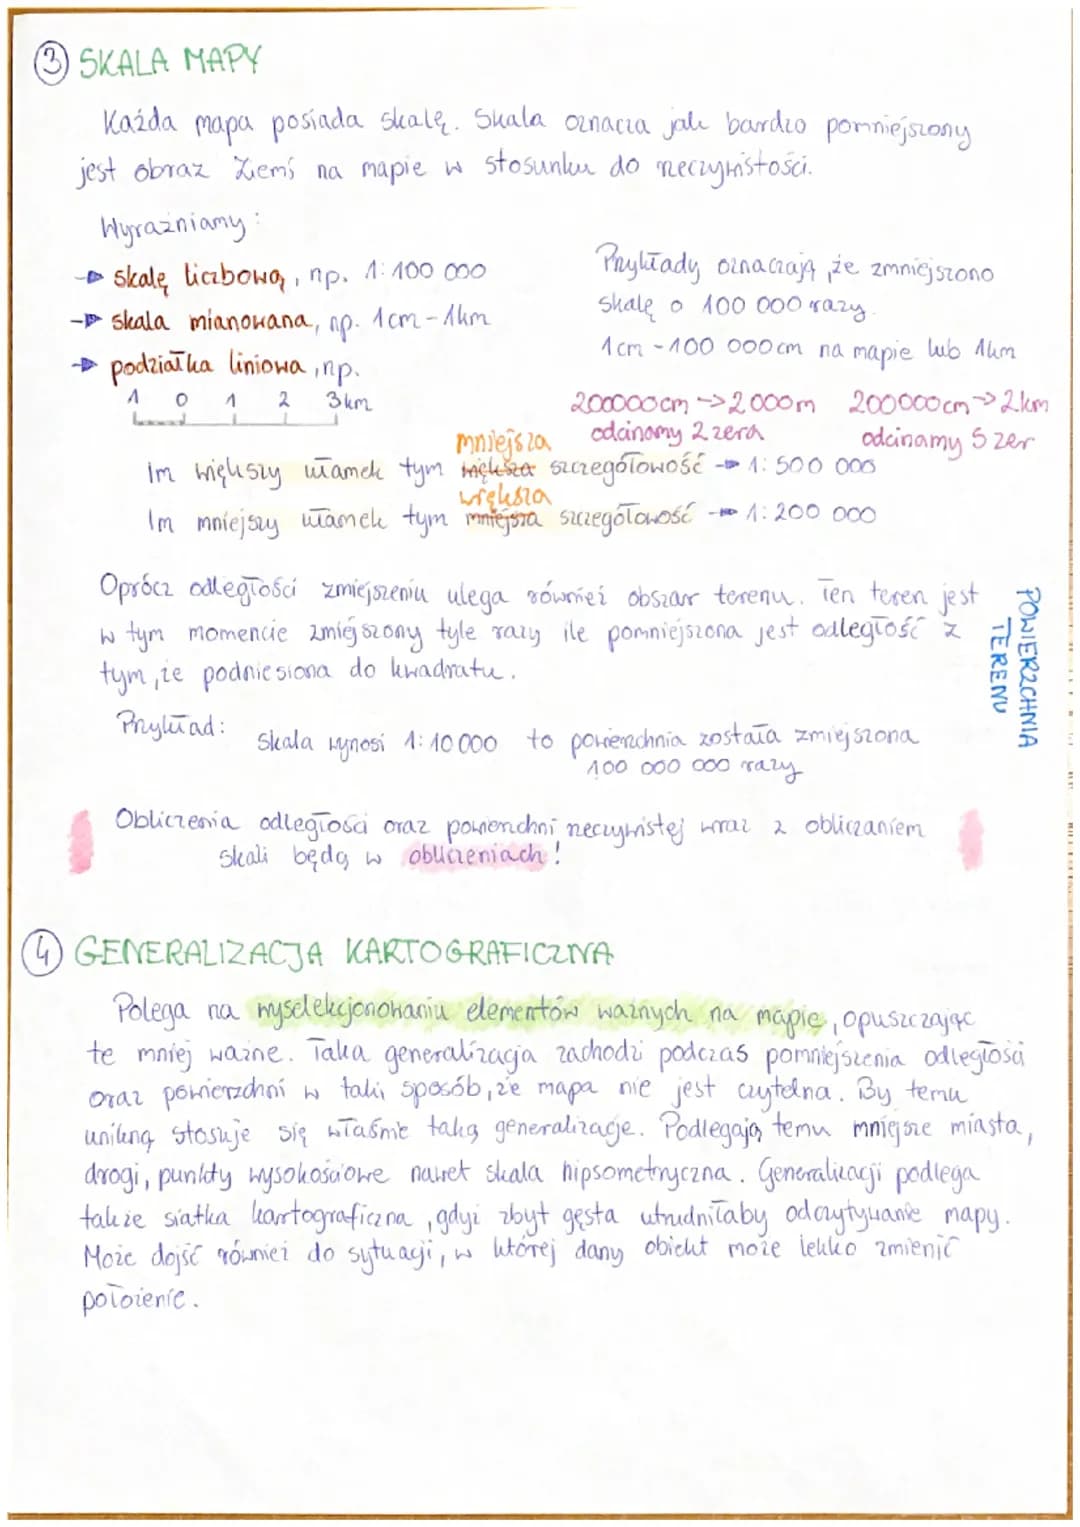 3 SKALA MAPY
Każda mapa posiada skalę. Skala oznacza jak bardzo pomniejszony
jest obraz Ziemi na mapie w stosunku do rzeczywistości.
Wyraźniamy:
→ skalę liczbową, np. 1:100 000
→ skala mianowana, np. 1cm-1km
→ podziałka liniowa, np.
1 0 1 2 3km
Przykłady oznaczają, że zmniejszono
skalę o 100 000 razy.
1cm - 100 000cm na mapie lub 1km
200000cm → 2000m 200000cm → 2km
odcinamy 2 zera odcinamy 5 zer
mniejsza
Im większy ułamek tym większa szczegółowość → 1:500 000
większa
Im mniejszy ułamek tym mniejsza szczegółowość → 1:200 000
Oprócz odległości zmiejszeniu ulega również obszar terenu. Ten teren jest
w tym momencie zmiejszony tyle razy ile pomniejszona jest odległość z
tym, że podniesiona do kwadratu.
POWIERZCHNIA
TERENU
Przykład: Skala wynosi 1:10000 to powierzchnia została zmiejszona
100 000 000 razy
Obliczenia odległości oraz powierzchni rzeczywistej wraz z obliczaniem
skali będą w obliczeniach!
4 GENERALIZACJA KARTOGRAFICZNA
Polega na wyselekcjonowaniu elementów ważnych na mapie, opuszczając
te mniej ważne. Taka generalizacja zachodzi podczas pomniejszenia odległości
oraz powierzchni w taki sposób, że mapa nie jest czytelna. By temu
uniknąć stosuje się właśnie taką generalizację. Podlegają temu mniejsze miasta,
drogi, punkty wysokościowe nawet skala hipsometryczna. Generalizacji podlega
także siatka kartograficzna, gdyż zbyt gęsta utrudniłaby odczytywanie mapy.
Może dojść również do sytuacji, w której dany obiekt może lekko zmienić
położenie.